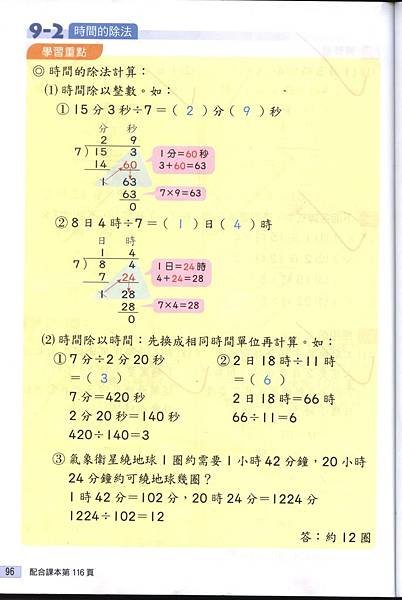 9-2 時間的除法
學習重點
◎ 時間的除法計算：
(1) 時間除以整數。如：
① 15分3秒÷7＝（ 2 ）分（ 9 ）秒
分 秒
2 9
7) 15 3
14 60
1 63
63
0
1分＝60秒
3＋60＝63
7×9＝63
② 8日4時÷7＝（ 1 ）日（ 4 ）時
日 時
1 4
7) 8 4
7 24
1 28
28
0
1日＝24時
4＋24＝28
7×4＝28
(2) 時間除以時間：先換成相同時間單位再計算。如：
① 7分÷2分20秒
＝（ 3 ）
7分＝420秒
2分20秒＝140秒
420÷140＝3
② 2日18時÷11時
＝（ 6 ）
2日18時＝66時
66÷11＝6
③ 氣象衛星繞地球1圈約需要1小時42分鐘，20小時
24分鐘約可繞地球幾圈？
1時42分＝102分，20時24分＝1224分
1224÷102＝12
答：約12圈
96 配合課本第116頁